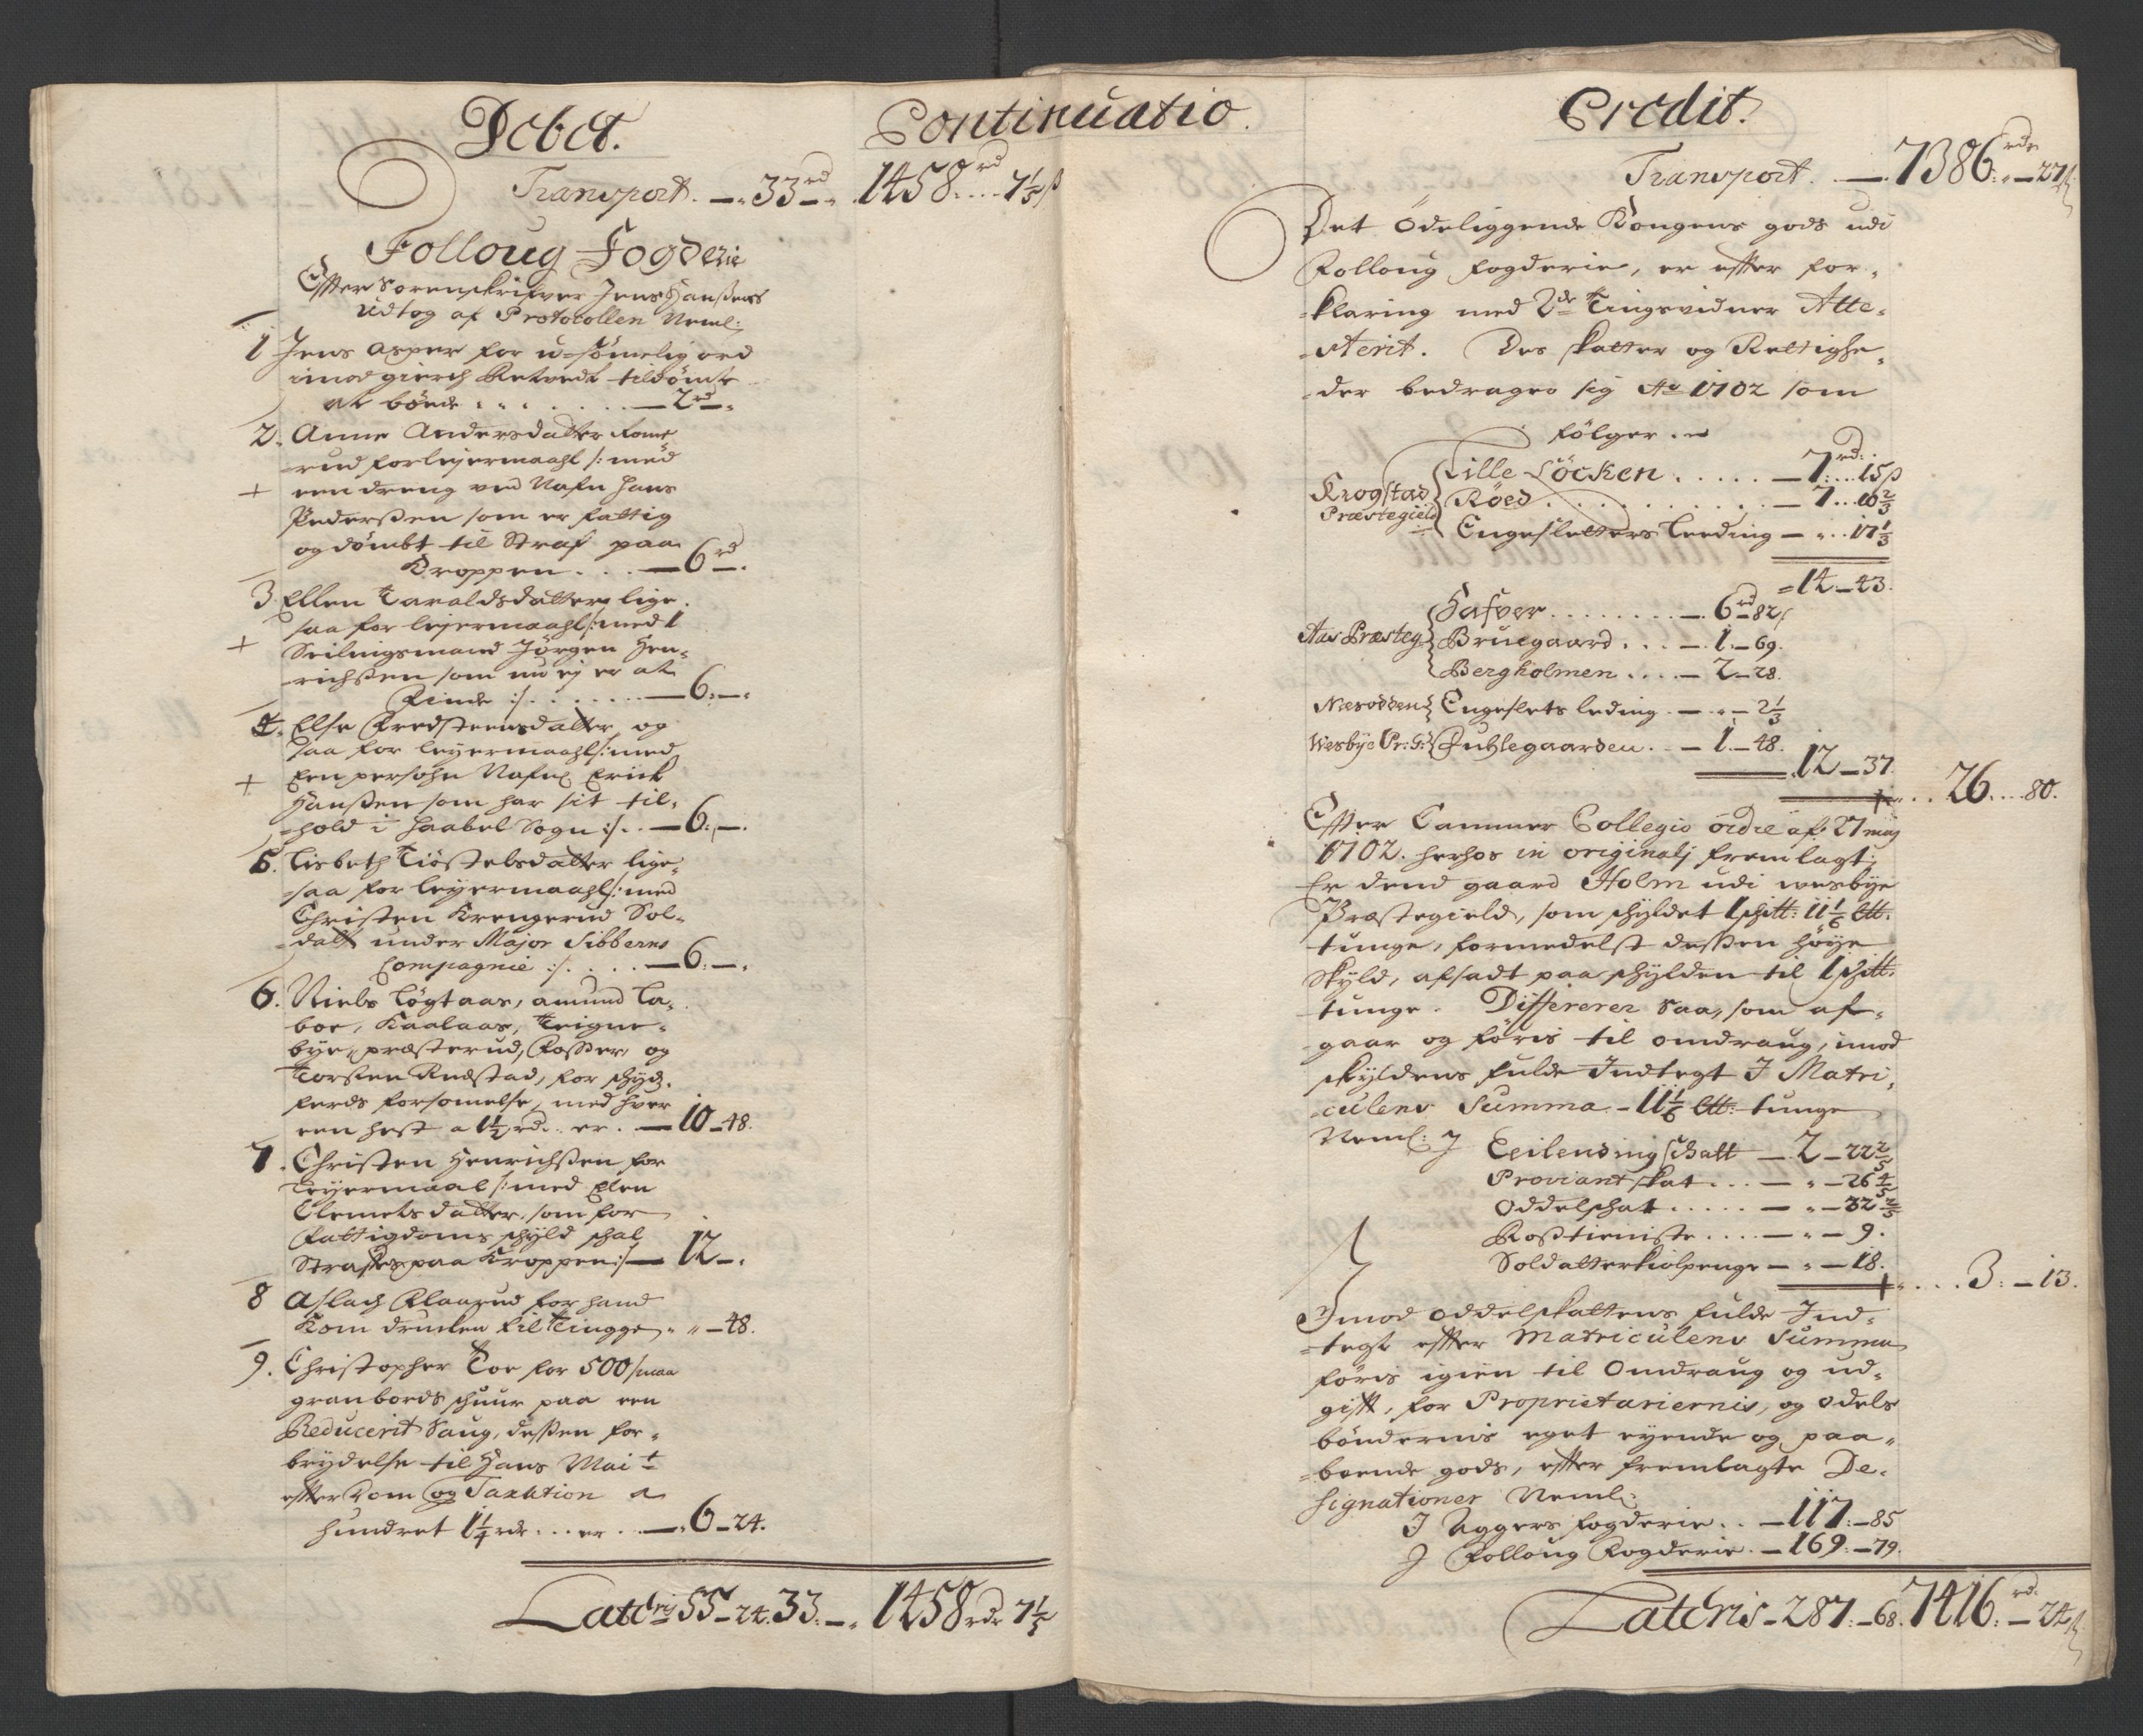 Debet. Continuatio.
Transport. — 33 rd — . 1458 rd .... 7 1/5 ß
Folloug Fogderie
Effter Sorenskrifver Jens Hanßens
udtog af Protocollen Neml:
1 Jens Asper for u-sømelig ord
imod giercht tildømt
at bøde . . . . — 2 rd — .
2. Anne Andersdatter
-rud forleyermaahl /: med
+ een dreng ved Nafn Hans
Pederßen som er fattig
og dømbt til Straf paa
Kroppen . . . — 6 rd — .
3 Ellen Taraldsdatter lige-
saa for leyermaahl /: med 1
+ Seilingsmand Jörgen Hen-
-richßen som nu ej er at
Finde :/ . . . . . . — 6: — .
4. Else Fredsteensdatter og
saa for leyermaahl /: med
+ Een persohn Nafnl Erich
Hanßen som har sit til-
-hold i Haabel Sogn :/ . . — 6: — .
5. Lisbeth Kiöstelsdatter lige-
-saa for leyermaahl /: med
Christen Krengerud Sol-
-dalt under Major Sibberns
Compagnie :/ . . . — 6: — .
6. Niels Løgtaas, Amund La-
boe, Kaalaas, Teigne-
bye, Præsterud, Foßer, og
Torsten Rudstad, for schyds-
ferds forsømelse, med hver
een hest a 1 1/2 rd. er . — 10 - 48.
7. Christen Henrichßen for
Leyermaal /: med Elen
Clemetsdatter, som for
Fattigdoms schyld schal
Straffes paa Kroppen :/ — 12 — .
8 Aslach Klaarud for hand
Kom drucken til Tingge . " — 48.
9. Christopher Toe for 500 smaa
granbords schuur paa een
Reducerit Saug, deßen for-
brydelse til Hans Mai t
effter Dom og Taxation a
hundret 1 1/4 rdr ... er . . — . 6 - 24.
Lateris 55 - 24. 33: — . 1458 rdr 7 1/5
Credit.
Transport. . — . 7386: rdr — 27 ß
Det Ödeliggende Kongens gods udi
Folloug fogderie, er effter for-
-klaring med 2de Tingsvidner Atte-
-sterit. Des skatter og Rettighe-
-der bedrages sig Ao 1702 som
følger .
Krogstad Præstegield { Lille Löcken . . . . . — 7 rd: . . 15 ß
Röed . . . . . . . . . . — 7 . . 10 2/3
Engesletters Leeding — " . . 17 1/3
= 14 - 43.
Aas Præsteg: { Hafver . . . . . . . — . 6 rd 82 ß
Bruegaard . . . — . 1. — 69.
Bergholmen . . . . — 2 - 28.
Nesodden { Engeslets leding . — " — 2 1/3
Wesbye Pr: G: { Juhlegaarden . . — 1. — 48.
12 — 37.
. . 26 . . . 80.
Effter Cammer Collegio ordre af 27 maj
1702. herhos in originalj fremlagt,
Er dend gaard Holm udi Wesbye
Præstegield, som schyldet 1 schtt: 11 1/6 Ltt.
tunge, formedelst deßen høye
Skyld, afsadt paa schylden til 1 schtt.
tunge. Differerer Saa, som af-
gaar og føris til omdraug, imod
skyldens fulde Indtegt I Matri-
-culens Summa - 11 1/6 Ltt: tunge
Neml: J Leilending schatt — 2 - 22 2/5
Proviant skat . . . — " — 26 4/5
Oddelschat . . . . . — " — 32 2/5
Roßtieniste . . . . — " — 9.
Soldatterkiolpenge — " — 18.
. . . . 3: — 13.
Imod oddelskattens fulde Ind-
-tegt effter Matriculens Summa
føris igien til Omdraug og ud-
gifft, for Proprietariernis, og odels
bøndernis eget eyende og paa-
-boende gods, effter fremlagte De-
signationer Neml:
J Aggers fogderie . . — 117: — 85
J Folloug Fogderie. — 169: — 79.
Lateris — 287: — 68. 7416: rd. — 24 ß